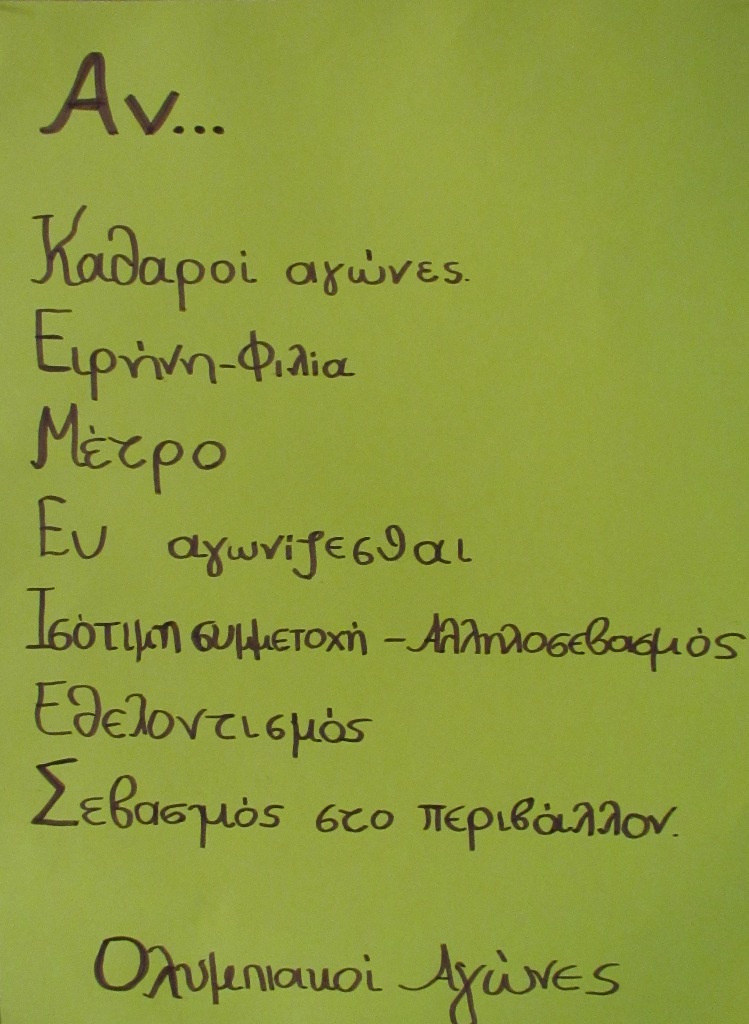 Αν...
Καθαροί αγώνες.
Ειρήνη-Φιλία
Μέτρο
Ευ αγωνίζεσθαι
Ισότιμη συμμετοχή - Αλληλοσεβασμός
Εθελοντισμός
Σεβασμός στο περιβάλλον.
Ολυμπιακοί Αγώνες